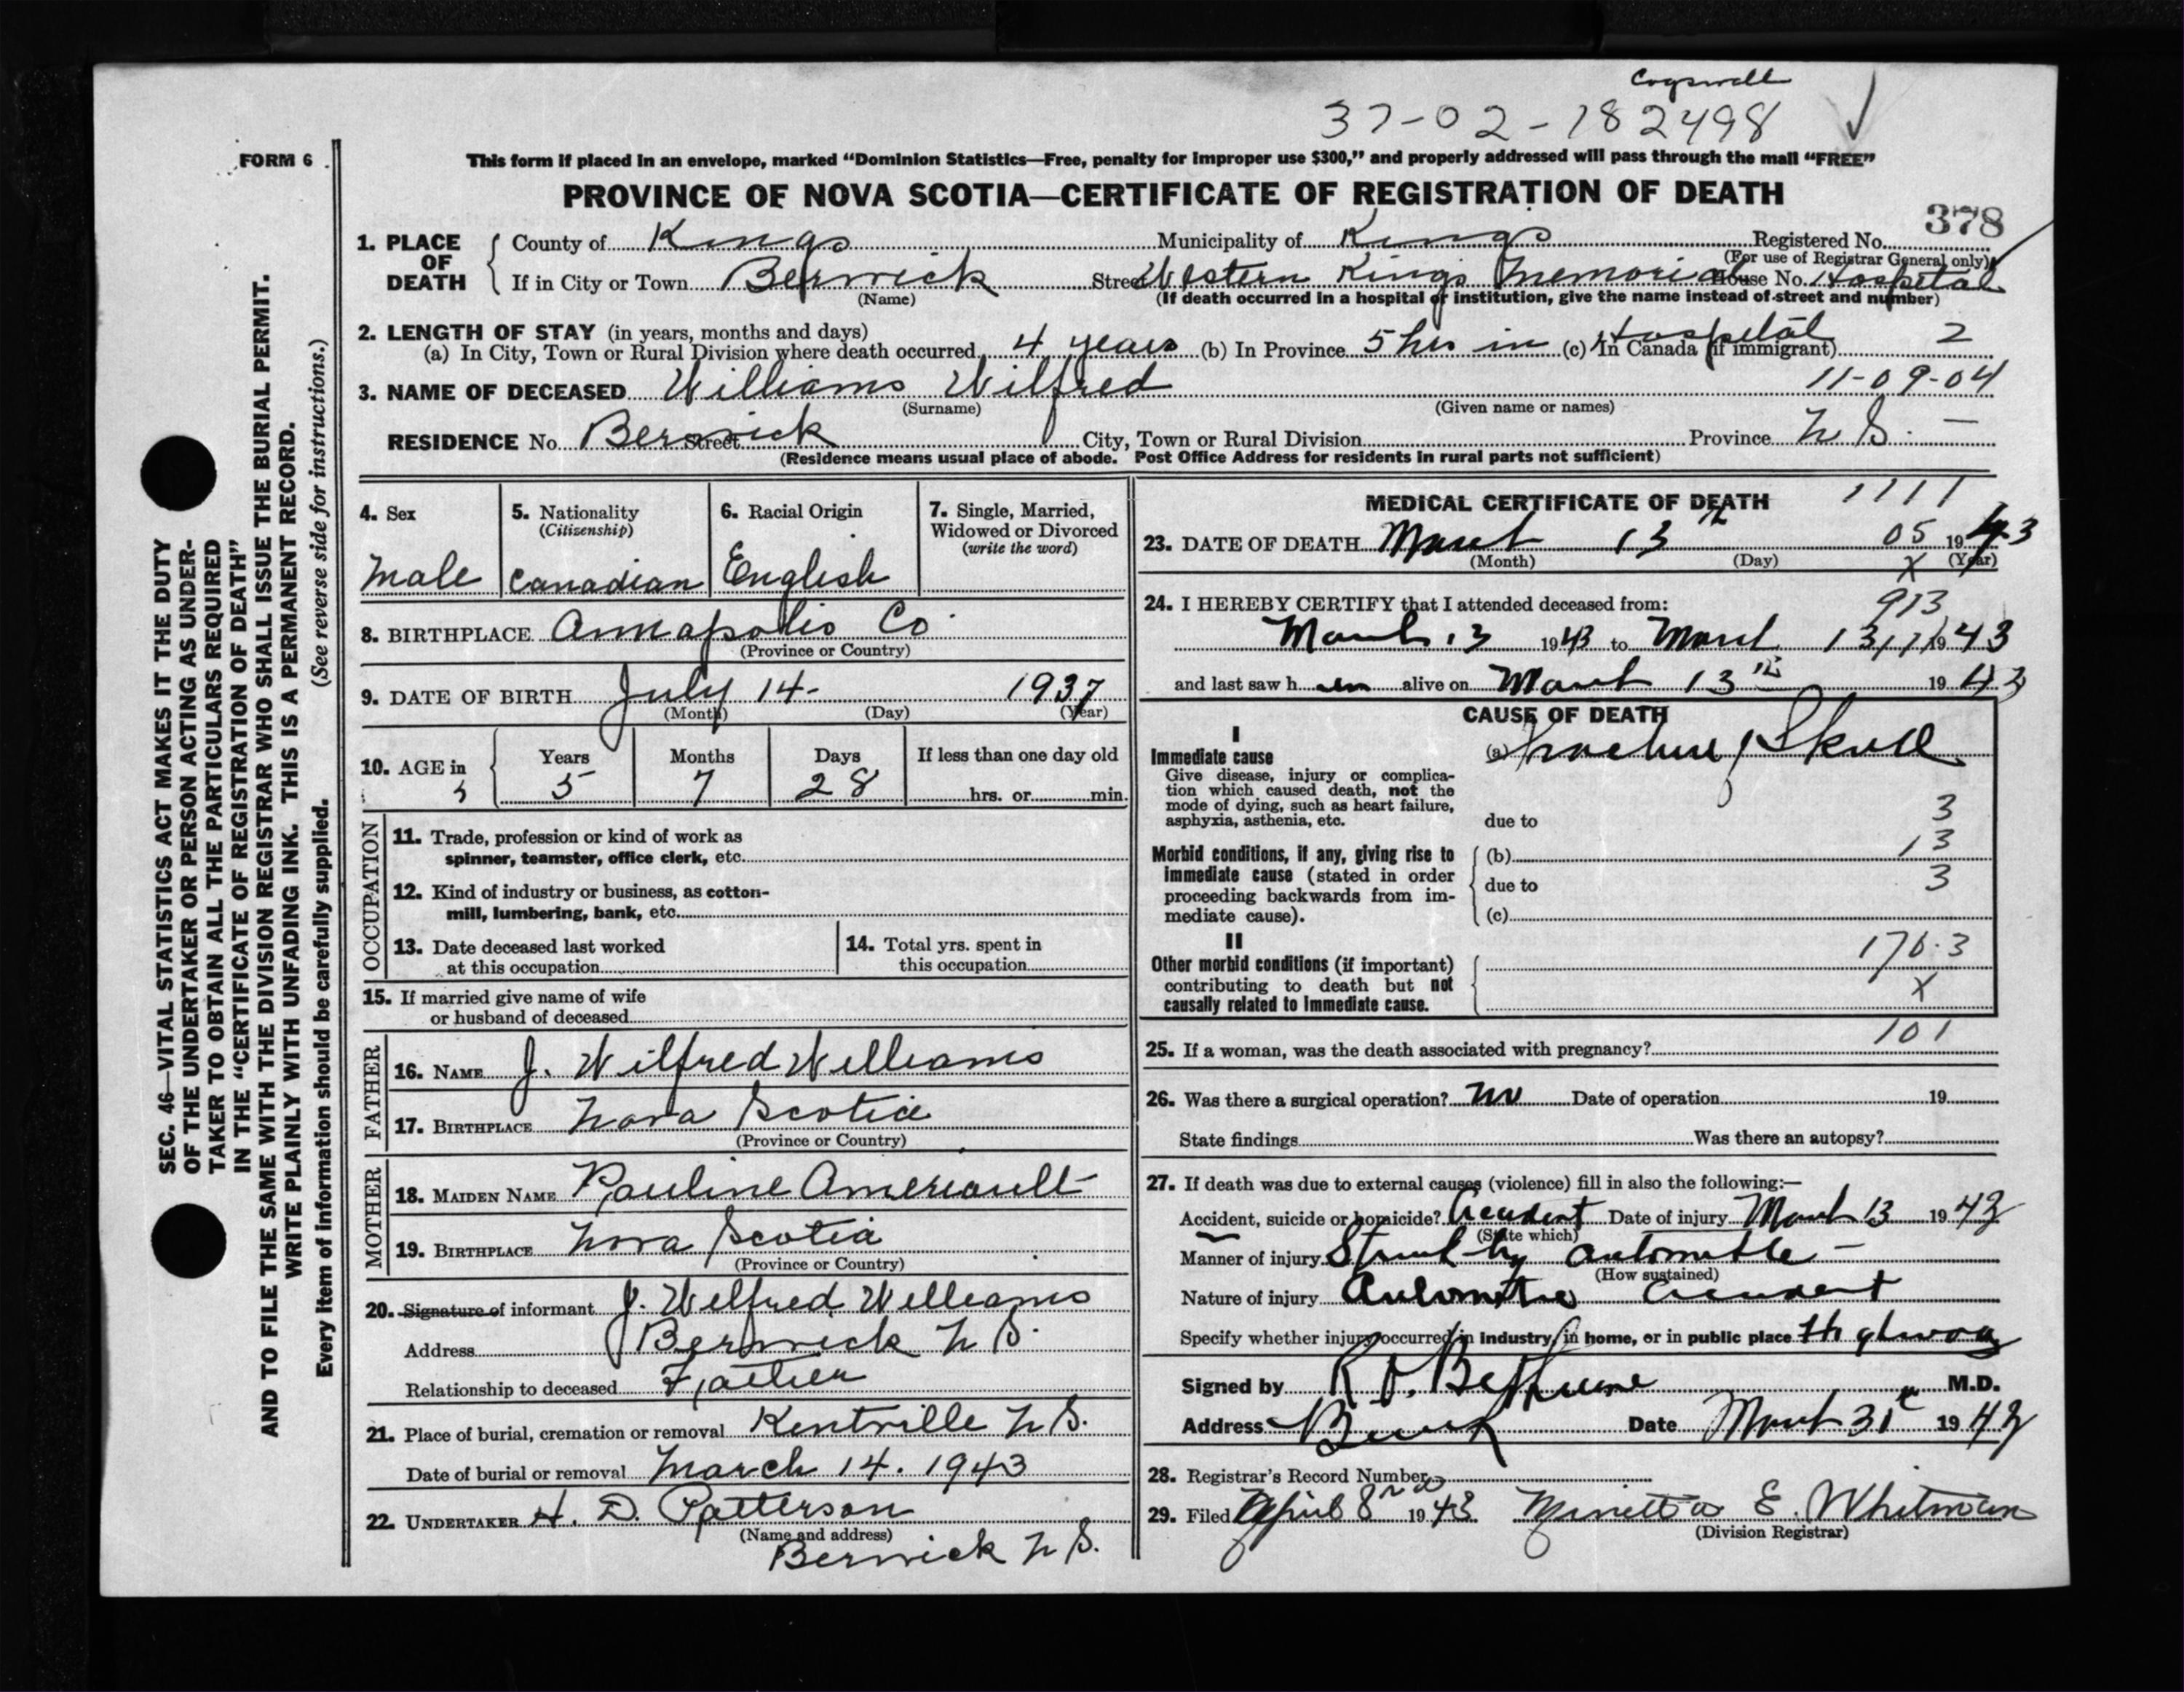 Cogswell
37-02-182498
FORM 6
This form if placed in an envelope, marked “Dominion Statistics—Free, penalty for improper use $300,” and properly addressed will pass through the mail “FREE”
PROVINCE OF NOVA SCOTIA—CERTIFICATE OF REGISTRATION OF DEATH
378
1. PLACE OF DEATH
County of Kings Municipality of Kings Registered No.
(For use of Registrar General only)
If in City or Town Berwick Street Western Kings Memorial House No. Hospital
(Name) (If death occurred in a hospital or institution, give the name instead of street and number)
2. LENGTH OF STAY (in years, months and days)
(a) In City, Town or Rural Division where death occurred 4 years (b) In Province 5 hrs in (c) In Canada (if immigrant) Hospital 2
11-09-04
3. NAME OF DECEASED Williams Wilfred
(Surname) (Given name or names)
RESIDENCE No. Berwick Street City, Town or Rural Division Province N S. —
(Residence means usual place of abode. Post Office Address for residents in rural parts not sufficient)
4. Sex
Male
5. Nationality
(Citizenship)
Canadian
6. Racial Origin
English
7. Single, Married,
Widowed or Divorced
(write the word)
8. BIRTHPLACE Annapolis Co
(Province or Country)
9. DATE OF BIRTH July 14- 1937
(Month) (Day) (Year)
10. AGE in
Years Months Days If less than one day old
5 5 7 28 hrs. or min.
OCCUPATION
11. Trade, profession or kind of work as
spinner, teamster, office clerk, etc.
12. Kind of industry or business, as cotton-
mill, lumbering, bank, etc.
13. Date deceased last worked
at this occupation
14. Total yrs. spent in
this occupation
15. If married give name of wife
or husband of deceased
FATHER
16. NAME J. Wilfred Williams
17. BIRTHPLACE Nova Scotia
(Province or Country)
MOTHER
18. MAIDEN NAME Pauline Amereault
19. BIRTHPLACE Nova Scotia
(Province or Country)
20. Signature of informant J. Wilfred Williams
Address Berwick N S.
Relationship to deceased Father
21. Place of burial, cremation or removal Kentville N S.
Date of burial or removal March 14. 1943
22. UNDERTAKER H. D. Patterson
(Name and address)
Berwick N S.
MEDICAL CERTIFICATE OF DEATH 1111
23. DATE OF DEATH March 13th 05 1943
(Month) (Day) X (Year)
24. I HEREBY CERTIFY that I attended deceased from: 913
March 13 1943 to March 13, 1943
and last saw h im alive on March 13th 1943
CAUSE OF DEATH
I
Immediate cause
Give disease, injury or complica-
tion which caused death, not the
mode of dying, such as heart failure,
asphyxia, asthenia, etc.
(a) Fracture of Skull
due to 3
Morbid conditions, if any, giving rise to
immediate cause (stated in order
proceeding backwards from im-
mediate cause).
(b) 13
due to 3
(c)
II
Other morbid conditions (if important)
contributing to death but not
causally related to immediate cause.
170.3
X
101
25. If a woman, was the death associated with pregnancy?
26. Was there a surgical operation? no Date of operation 19
State findings Was there an autopsy?
27. If death was due to external causes (violence) fill in also the following:—
Accident, suicide or homicide? Accident Date of injury March 13 1943
(State which)
Manner of injury Struck by automobile —
(How sustained)
Nature of injury Automobile Accident
Specify whether injury occurred in industry, in home, or in public place Highway
Signed by Bethune M.D.
Address Date March 31st 1943
28. Registrar's Record Number
29. Filed April 8 1943 E. Whitman
(Division Registrar)
SEC. 46—VITAL STATISTICS ACT MAKES IT THE DUTY
OF THE UNDERTAKER OR PERSON ACTING AS UNDER-
TAKER TO OBTAIN ALL THE PARTICULARS REQUIRED
IN THE “CERTIFICATE OF REGISTRATION OF DEATH”
AND TO FILE THE SAME WITH THE DIVISION REGISTRAR WHO SHALL ISSUE THE BURIAL PERMIT.
WRITE PLAINLY WITH UNFADING INK. THIS IS A PERMANENT RECORD.
Every item of information should be carefully supplied. (See reverse side for instructions.)